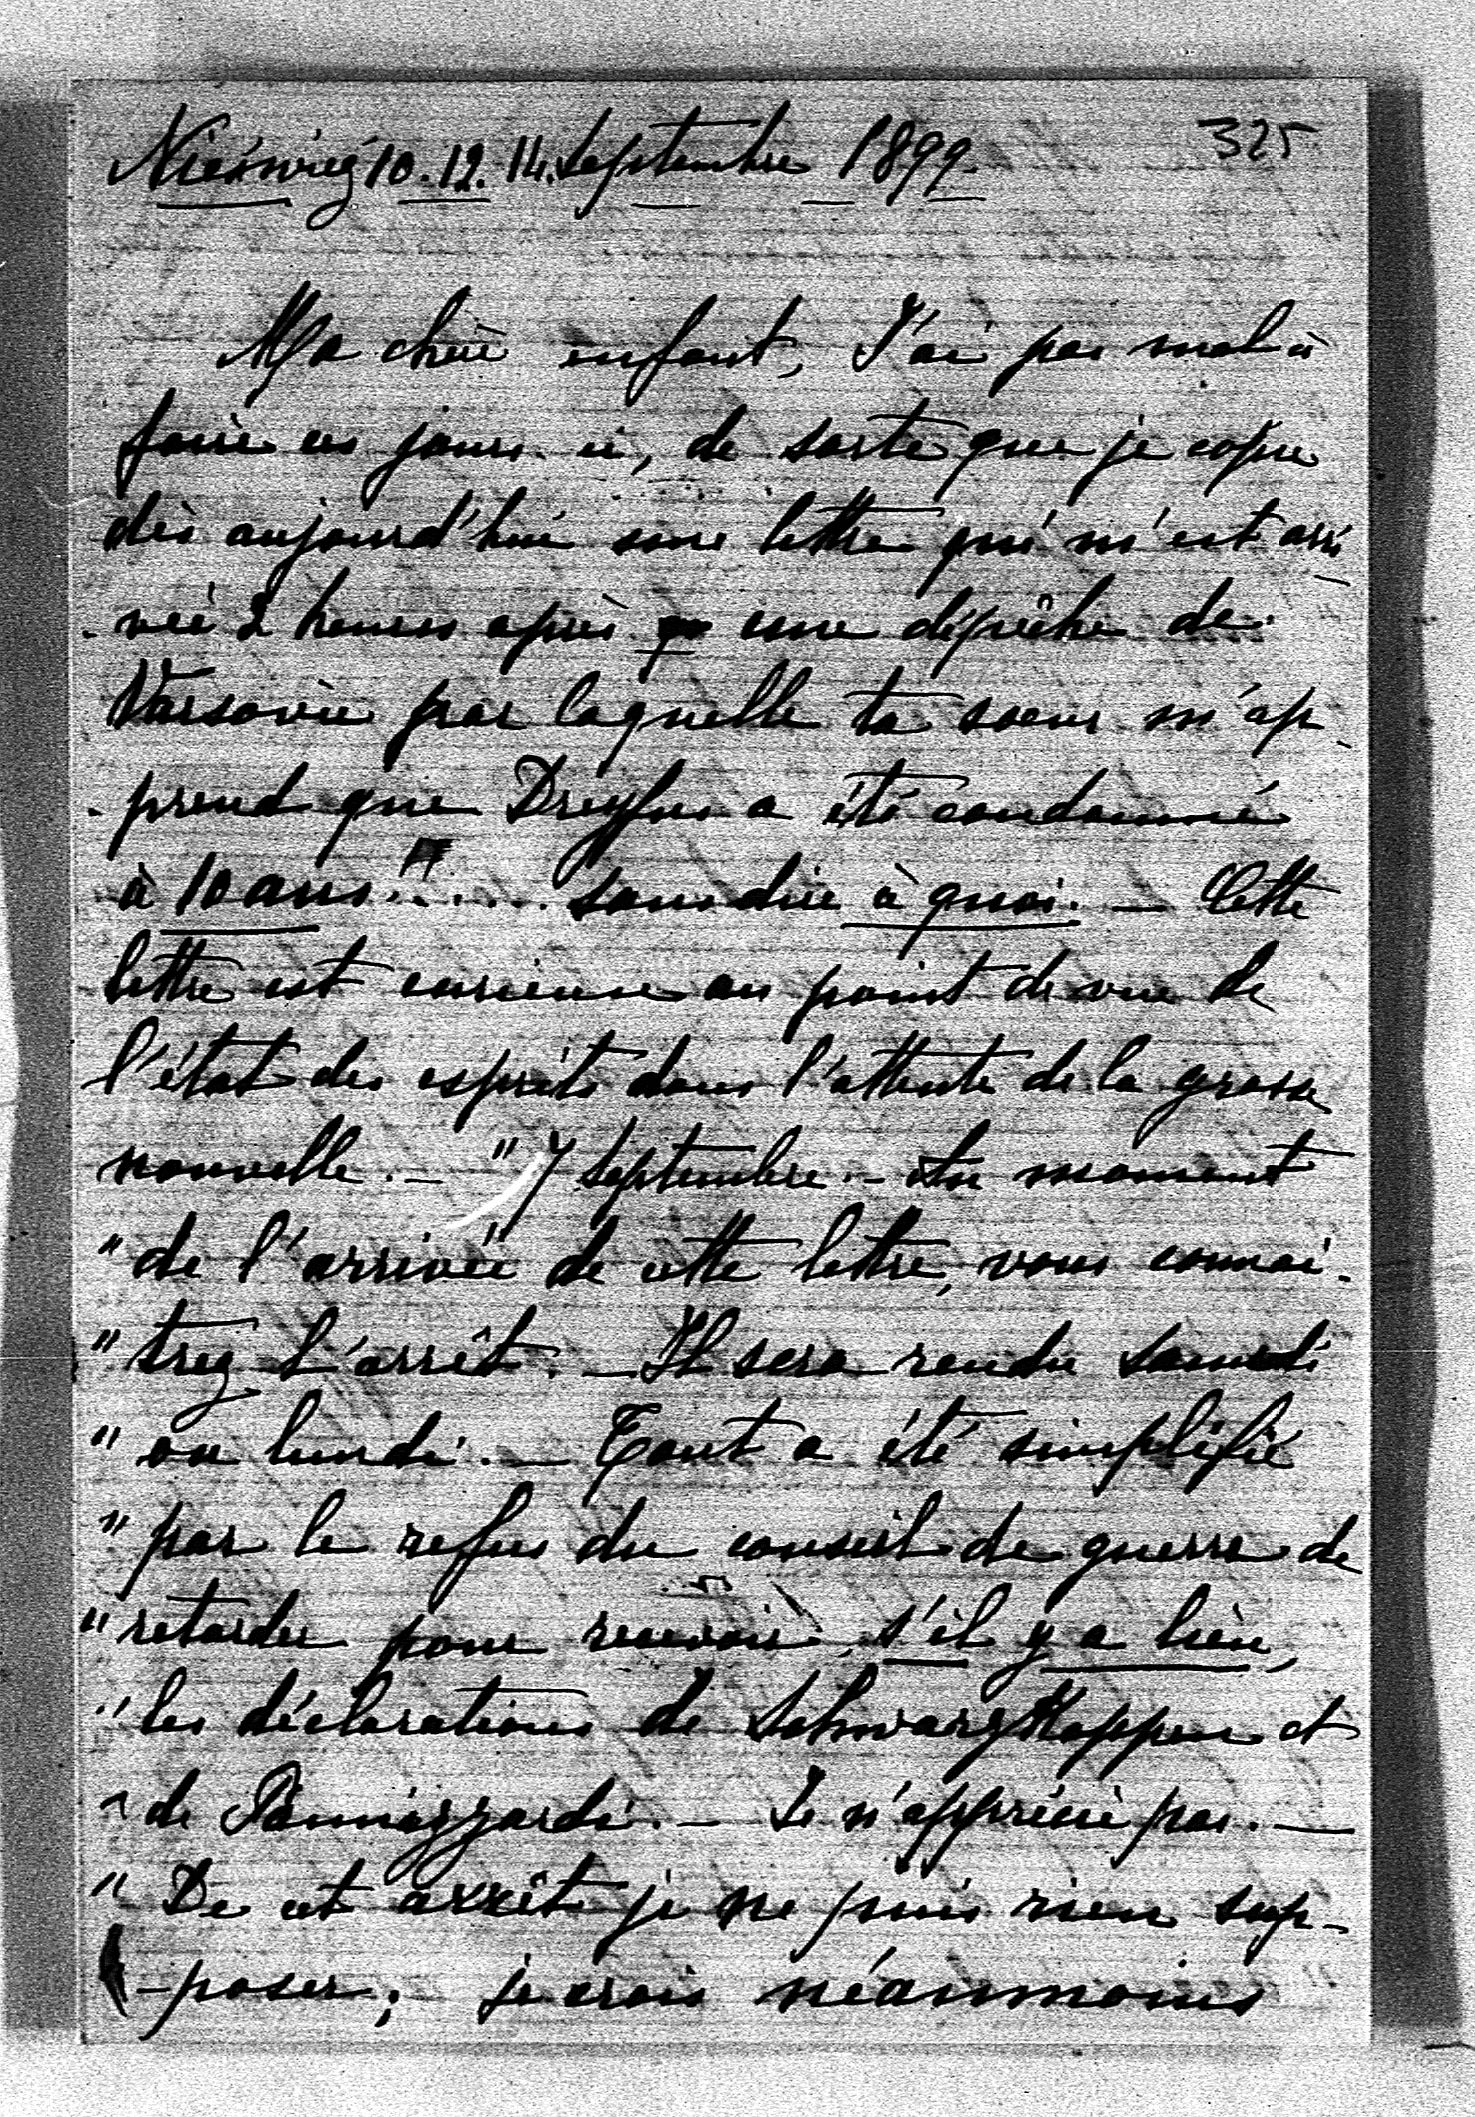 325
Nieswiez 10. 12. 14. Septembre 1899.
Ma chère enfant, J'ai pas mal à
faire ces jours-ci, de sorte que je copie
dès aujourd'hui une lettre qui m'est arri
-vée 2 heures après une dépêche de
Varsovie par laquelle ta soeur m'ap-
-prend que Dreyfus a été condamné
à 10 ans..... sans dire à quoi. — Cette
lettre est curieuse au point de vue de
l'état des esprits dans l'attente de la grosse
nouvelle. — " 7 Septembre. — Au moment
" de l'arrivée de cette lettre, vous connai-
" trez l'arrêt. — Il sera rendu samedi
" ou lundi. — Tout a été simplifié
" par le refus du conseil de guerre de
" retarder pour recevoir, s'il y a lieu,
" les déclarations de Schwarzkoppen et
" de Pannizzardi. — Je n'apprécie pas. —
" De cet arrêt je ne puis rien sup-
-poser; je crois néanmoins